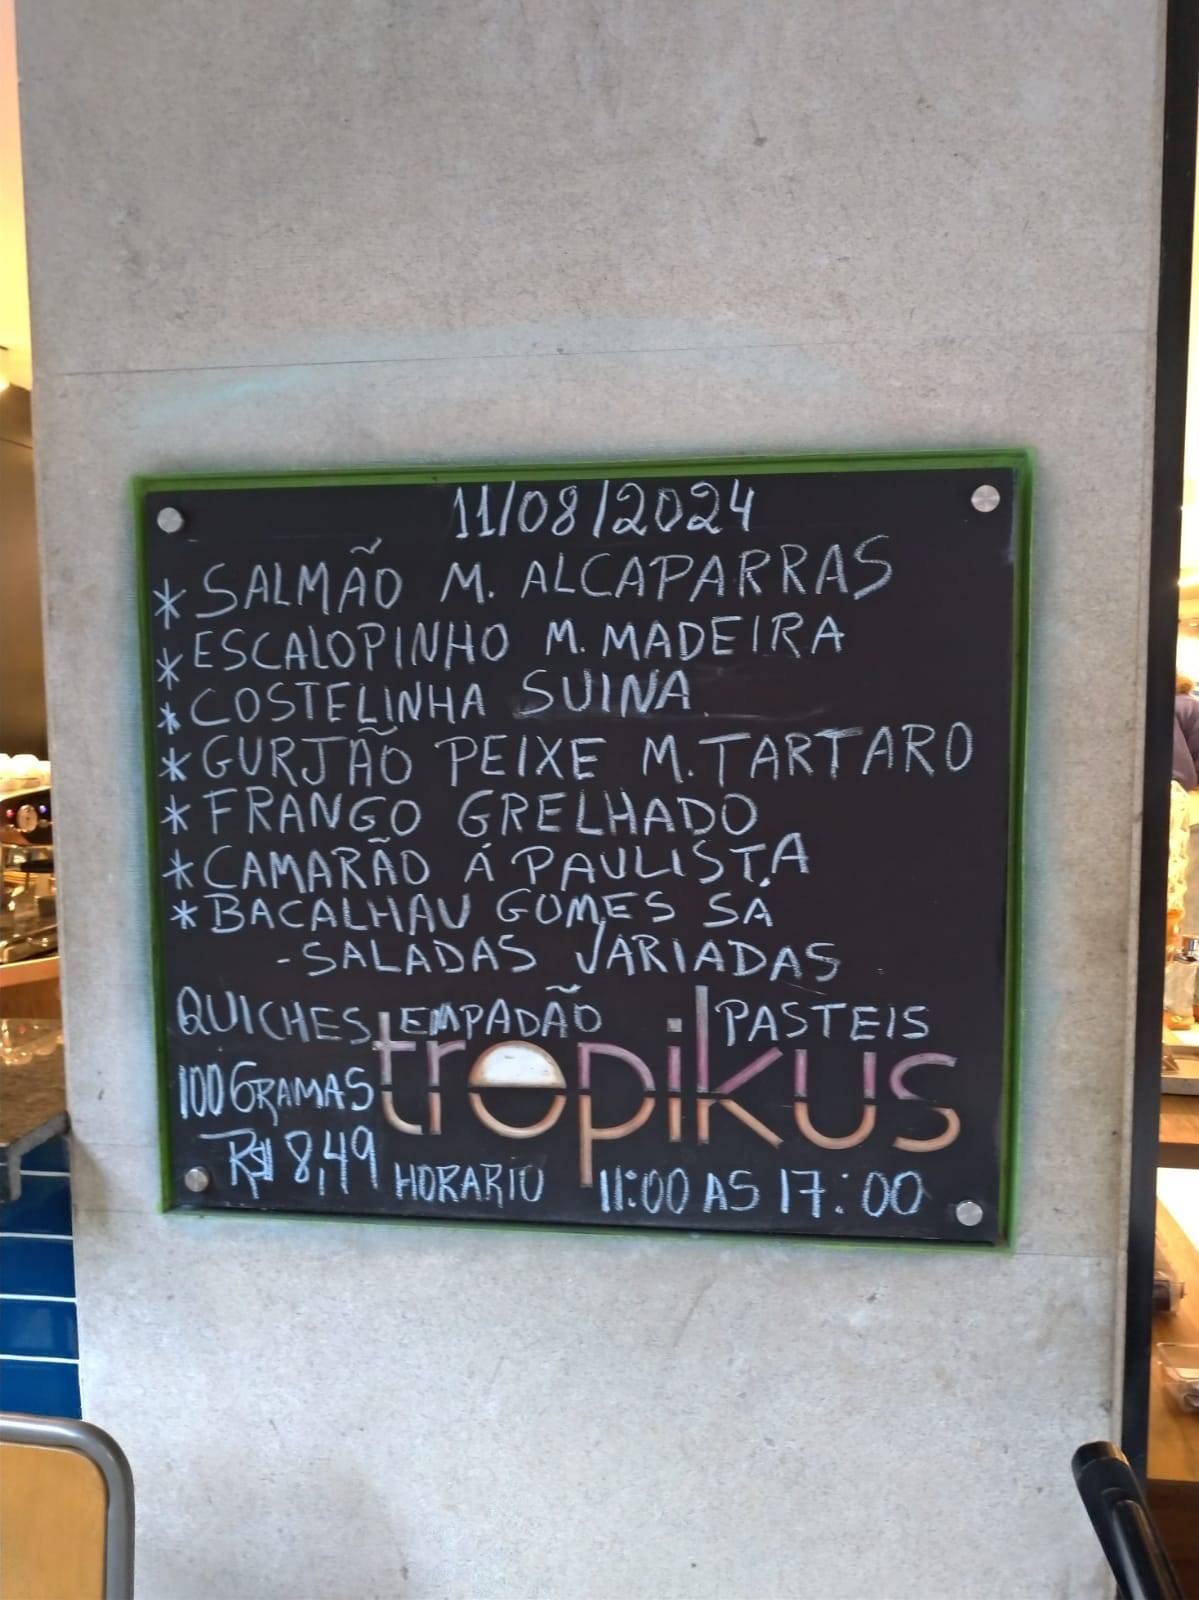 11/08/2024
* SALMÃO M. ALCAPARRAS
* ESCALOPINHO M. MADEIRA
* COSTELINHA SUINA
* GURJÃO PEIXE M. TARTARO
* FRANGO GRELHADO
* CAMARÃO Á PAULISTA
* BACALHAU GOMES SÁ
- SALADAS VARIADAS
QUICHES EMPADÃO PASTEIS
tropikus
100 GRAMAS
R$ 8,49 HORARIO 11:00 AS 17:00